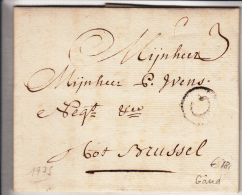 Mijnheer 3
Mijnheer P. Ivens
Negt &ca
Tot Brussel
1785
Gand